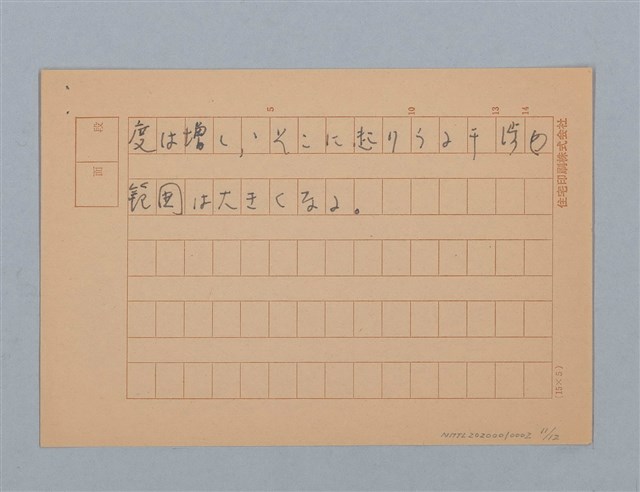 5 10 13 14
段
面
度は増し、そこに起りうる干渉の
範囲は大きくなる。
住宅印刷株式会社
(15×5)
NMTL20200010002 11/12